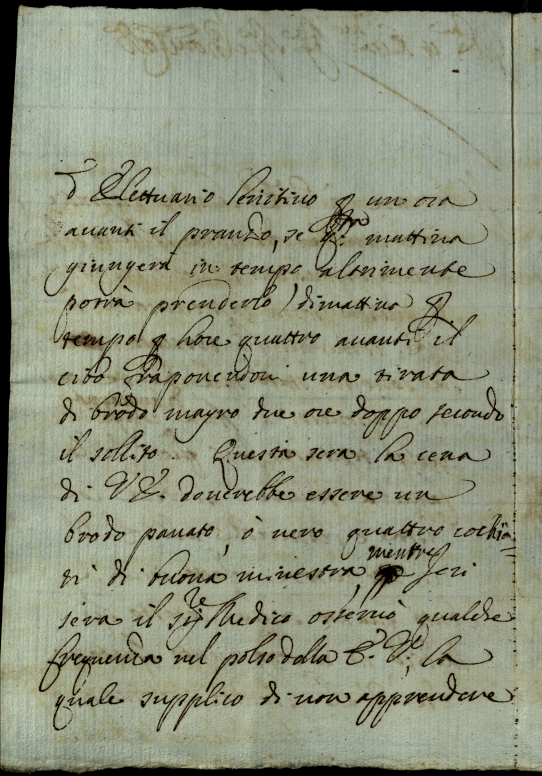 d'Elettuario lenitivo p un ora
avanti il pranzo, se q.sta mattina
giungerà in tempo, altrimente
potrà prenderlo dimattina p
tempo p hore quattro avanti il
cibo fraponendovi una tirata
di brodo magro due ore doppo secondo
il sollito. Questa sera la cena
di V.E. doverebbe essere un
brodo panato, ò vero quattro cochia=
ri di buona minestra, mentre Jeri
sera il sig.re Medico osservò qualche
frequenza nel polso della E. V., la
quale supplico di non apprendere